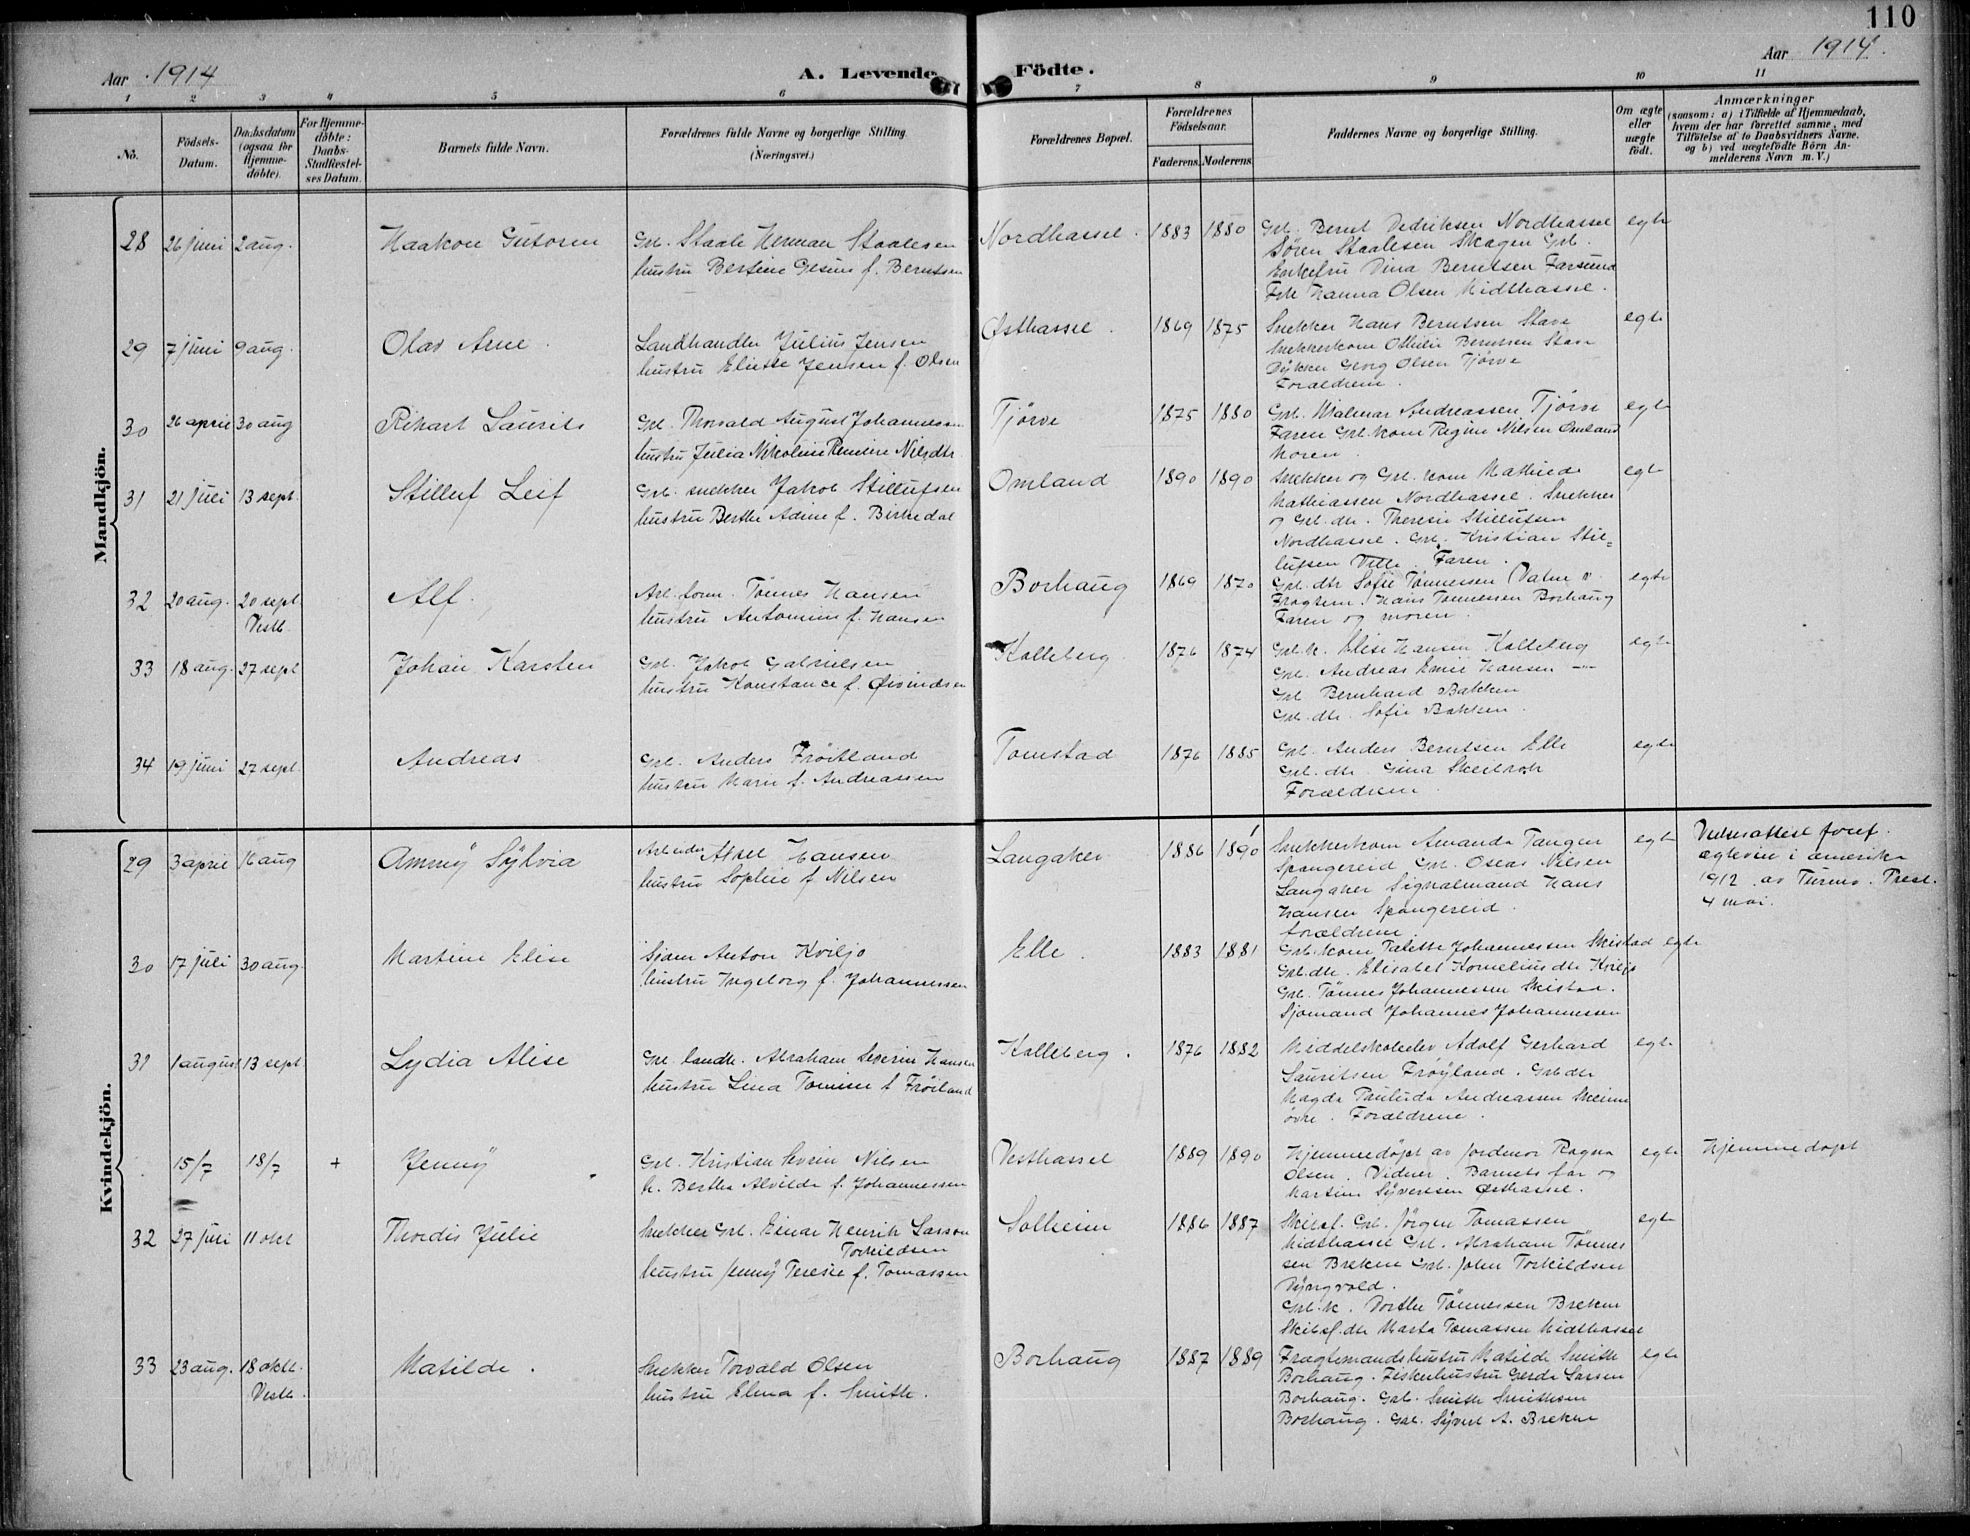 110
Aar 1914
A. Levende Födte.
Aar 1914.
1 2 3 4 5 6 7 8 9 10 11
No.
Födsels-Datum.
Daabsdatum (ogsaa for Hjemme-døbte).
For Hjemme-döbte: Daabs-Stadfæstel-ses Datum.
Barnets fulde Navn.
Forældrenes fulde Navne og borgerlige Stilling.
(Næringsvei.)
Forældrenes Bopæl.
Forældrenes Födselsaar.
Faderens. Moderens.
Faddernes Navne og borgerlige Stilling.
Om ægte eller uægte födt.
Anmærkninger
(saasom: a) i Tilfælde af Hjemmedaab, hvem der har forrettet samme, med Tilföielse af to Daabsvidners Navne, og b) ved uægtefödte Börn An-melderens Navn m. V.)
Mandkjön.
28 26 juni 2 aug. Haakon Gutorm
Grl. Staale Herman Staalesen
hustru Bertine Gesine f. Berntsen
Nordhassel. 1883 1880
Grl. Bernt Dedriksen Nordhassel
Søren Staalesen Skagen Grl.
Enkefru Dina Berntsen Farsund
Frk Hanna Olsen Midthassel.
egte
29 7 juni 9 aug. Olav Arne
Landhandler Julius Jensen
hustru Eliesse Jensen f. Olsen
Østhassel. 1869 1875
Snekker Hans Berntsen Stave
Snekkerkom Othilie Berntsen Stave
Dykker Georg Olsen Tjørve
Forældrene.
egte
30 26 april 30 aug Rikart Laurits
Grl. Thorvald August Johannessen
hustru Julia Nikoline Nilsdtr
Tjörve 1875 1880
Grl. Hjalmar Andreassen Tjørve
Faren Grl. kom Regine Nilsen Omland
Moren.
egte
31 21 juli 13 sept. Stilluf Leif
Grl. snekker Jakob Stillufsen
hustru Berthe Adine f. Birkedal
Omland 1890 1890
Snekker og Grl. kom Mathilde
Mathiassen Nordhassel. Snekker
og Grl. dtr. Theresie Stillufsen
Nordhassel. Grl. Kristian Stil=
lufsen Faren.
egte
32 20 aug. 20 sept. Vestb. Alf.
Arb. form. Tönnes Hansen
hustru Antomine f. Hansen
Borhaug 1869 1870
Grl. dtr Sofie Tønnessen Vatne
Fragtem. Hans Tønnessen Borhaug
Faren og moren.
egte
33 18 aug. 27 sept Johan Karsten
Grl. Jakob Gabrielsen
hustru Konstance f. Øivindsen
Kalleberg 1876 1874
Grl. k. Elise Hansen Kalleberg
Grl. Andreas Emil Hansen -"-
Grl Bernhard Bakken
Grl. dtr. Sofie Bakken.
egte
34 19 juni 27 sept. Andreas
Grl. Anders Frøitland
hustru Marie f. Andreassen
Tomstad 1876 1885
Grl. Anders Berntsen Elle
Grl. dtr. Gina
Forældrene
egte
Kvindekjön.
29 3 april 16 aug Ammy Sylvia
Arbeider Aksel Hansen
hustru Sophie f Nilsen
Langaker 1886 1890
Snekkerkom Amanda Tangen
Spangereid Grl. Oscar Nilsen
Langaker Signalmand Hans
Hansen Spangereid.
forældrene.
egte
Vielsesattest foref.
egteviet i Amerika
1912 av Prest.
4 mai.
30 17 juli 30 aug. Martine Elise
Sjøm Anton Kviljo
hustru Ingeborg f. Johannessen
Elle. 1883 1881
Grl. kom Talette Johannessen Skistad
Grl. dtr. Elisabet Korneliusdtr Kviljo
Grl. Tönnes Johannessen Skistad.
Sjømand Johannes Johannessen
egte
31 1 august 13 sept Lydia Alise
Grl. landh. Abraham Severin Hansen
hustru Lina Tomine f Frøiland
Kalleberg. 1876 1882
Middelskoleelev Adolf Gerhard
Lauritsen Frøyland. Grl. dtr
Magda Paulude Andreassen Skeime
øvre. Forældrene.
egte
15/7 18/7 + Jenny
Grl. Kristian Severin Nilsen
h. Bertha Alvilde f. Johannessen
Vesthassel 1889 1890
Hjemmedøpt av jordmor Ragna
Olsen. Vidner. Barnets far og
Martin Syvertsen Østhassel.
egte
Hjemmedøpt
32 27 juli 11 okt Thordis Julie
Snekker Grl. Einar Henrik Lassen
Torkildsen
hustru Jenny Teresie f. Tomassen
Solheim 1886 1887
Skibsf. Grl. Jörgen Tomassen
Midthassel Grl. Abraham Tønnes
sen Breken Grl. John Torkildsen
Dyngvold.
Grl. k. Dorthe Tønnessen Breken
Skibsf. dtr Marta Tomassen Midthassel
egte
33 23 aug. 18 oktb. Vestb. Matilde.
Snekker Torvald Olsen
hustru Elena f. Smith.
Borhaug 1887 1889
Fragtemandshustru Matilde Smith
Borhaug. Fiskerhustru Gerda Larsen
Borhaug. Grl. Smith Smithsen
Borhaug. Grl. Syvert A. Breken
egte